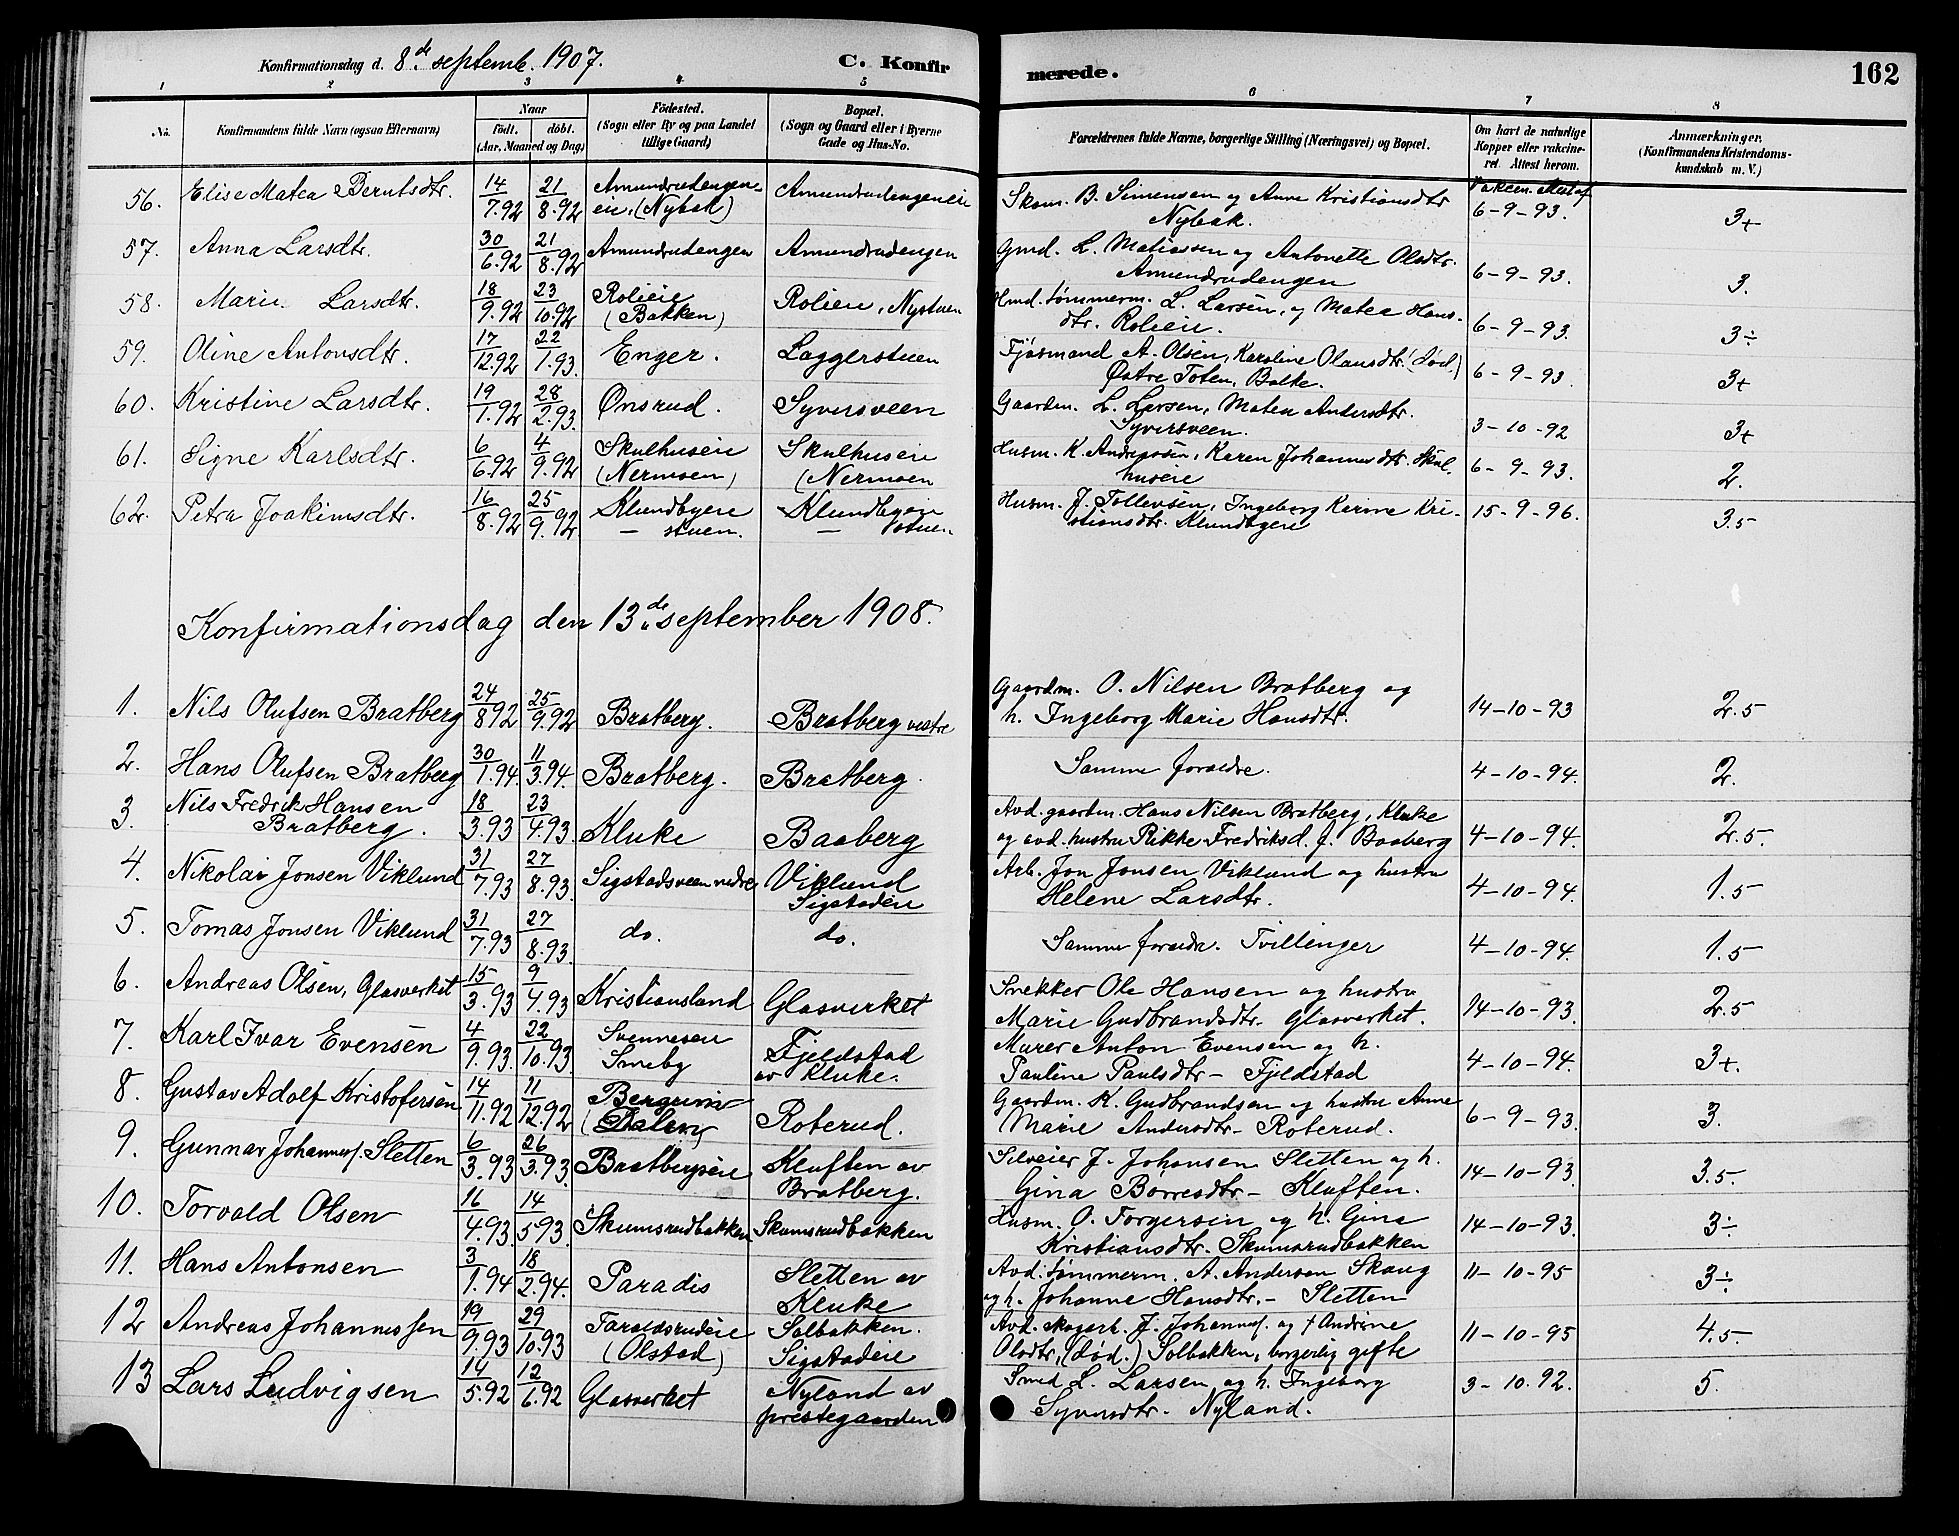 Konfirmationsdag d. 8de septemb. 1907. C. Konfir merede. 162
1 2 3 4 5 6 7 8
No. Konfirmandens fulde Navn (ogsaa Efternavn) Naar født. døbt. (Aar, Maaned og Dag) Fødested. (Sogn eller By og paa Landet tillige Gaard) Bopæl. (Sogn og Gaard eller i Byerne Gade og Hus-No. Forældrenes fulde Navne, borgerlige Stilling (Næringsvei) og Bopæl. Om havt de naturlige Kopper eller vakcineret. Attest herom. Anmærkninger. (Konfirmandens Kristendomskundskab m. V.)
56. Elise Matea Berntsdtr. 14/7.92 21/8.92 Amundrudengen- Amundrudengeneie Skom. B. Simensen og Anne Kristiansdtr Vakcin. Attest af
eie, (Nybak) Nybak. 6-9-93. 3+
57. Anna Larsdtr. 30/6.92 21/8.92 Amundrudengen Amundrudengen Gmd. L. Matiassen og Antonette Olsdtr.
Amundrudengen 6-9-93. 3.
58. Marie Larsdtr. 18/9.92 23/10.92 Rolieie Rolieie, Nystuen Hmd. tømmerm. L. Larsen, og Matea Hans-
(Bakken) dtr. Rolieie. 6-9-93. 3÷
59. Oline Antonsdtr. 17/12.92 22/1.93. Enger. Laggerstuen Fjøsmand A. Olsen, Karoline Olausdtr. (død.)
Østre Toten, Balke. 6-9-93. 3+
60. Kristine Larsdtr. 19/1.92 28/2.93. Ønsrud. Syversveen Gaardm. L. Larsen, Matea Andersdtr.
Syversveen. 3-10-92 3+
61. Signe Karlsdtr. 6/6.92 4/9.92 Skulhuseie Skulhuseie Husm. K. Andreasen, Karen Johannesdtr. Skul-
(Nermoen) (Nermoen huseie 6-9-93. 2.
62. Petra Joakimsdtr. 16/8.92 25/9.92 Klundbyeie Klundbyeie Husm. J. Tollevsen, Ingeborg Kirine Kri-
— stuen. — stuen stiansdtr. Klundbyeie 15-9-96. 3.5
Konfirmationsdag den 13de september 1908.
1. Nils Olufsen Bratberg 24/8 92 25/9.92 Bratberg. Bratberg vestre Gaardm. O. Nilsen Bratberg og
h. Ingeborg Marie Hansdtr. 14-10-93 2.5
2. Hans Olufsen Bratberg 30/1.94. 11/3.94. Bratberg. Bratberg. Samme foreldre. 4-10-94. 2.
3. Nils Fredrik Hansen 18/3.93 23/4.93 Kluke Baaberg Avd. gaardm. Hans Nilsen Bratberg, Kluke
Bratberg. og avd. hustru Rikke Fredriksd. f. Baaberg 4-10-94. 2.5.
4. Nikolai Jonsen Viklund 31/7.93 27/8.93. Sigstadsveen nedre Viklund Arb. Jon Jonsen Viklund og hustru
Sigstadeie Helene Larsdtr. 4-10-94. 1.5
5. Tomas Jonsen Viklund 31/7.93 27/8.93. do. do. Samme foreldr. Tvillinger 4-10-94. 1.5
6. Andreas Olsen, Glasverket 15/3.93 9/4.93 Kristiansland Glasverket Snekker Ole Hansen og hustru
Marie Gudbrandsdtr. Glasverket. 14-10-93. 2.5
7. Karl Ivar Evensen 4/9.93. 22/10.93 Svenneseie Fjeldstad Murer Anton Evensen og h.
Smeby av Kluke. Pauline Paulsdtr- Fjeldstad 4-10-94. 3+.
8. Gustav Adolf Kristofersen 14/11.92 11/12.92 Bergseie Roterud. Gaardm. K. Gudbrandsen og hustru Anne
(Dalen) Marie Andersdtr- Roterud. 6-9-93. 3.
9. Gunnar Johannesf. Sletten 6/3.93 26/3.93. Bratbergseie Kluften av Silveier J. Johansen Sletten og h.
Bratberg. Gina Børresdtr- Kluften. 14-10-93. 3.5.
10. Torvald Olsen 16/4.93. 14/593. Skumsrudbakken Skumsrudbakken Husm. O. Torgersen og h. Gina
Kristiansdtr. Skumsrudbakken 14-10-93. 3÷
11. Hans Antonsen 3/1.94 18/2.94. Paradis Sletten av Avd. tømmerm. A. Andersen Skaug
Kluke og h. Johanne Hansdtr.- Sletten 11-10-95 3÷
12 Andreas Johannessen 19/9.93 29/10.93 Taraldsrudeie Solbakken. Avd. skogarb. J. Johannesf. og † Andrine
(Olstad) Sigstadeie Olsdtr, (død.) Solbakken, borgerlig gifte 11-10-95 4.5.
13 Lars Ludvigsen 14/5.92 12/6.92 Glasverket Nyland av Smed L. Larsen og h. Ingeborg
prestegaarden Syversdtr. Nyland. 3-10.92. 5.